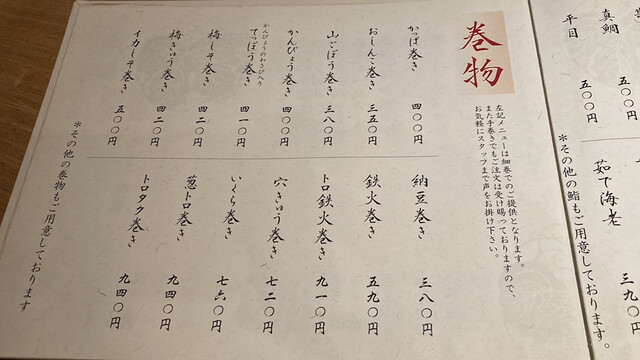 真鯛 五〇〇円
平目 五〇〇円
茹で海老 三九〇
*その他の鮨もご用意しております。
巻物
左記メニューは細巻でのご提供となります。
また手巻きでもご注文は受け賜っておりますので、
お気軽にスタッフまで声をお掛け下さい。
かっぱ巻き 四〇〇円
おしんこ巻き 三五〇円
山ごぼう巻き 三八〇円
かんぴょう巻き 四〇〇円
かんぴょうのわさび入り
てっぽう巻き 四一〇円
梅しそ巻き 四二〇円
梅きゅう巻き 四二〇円
イカしそ巻き 五〇〇円
納豆巻き 三八〇円
鉄火巻き 五九〇円
トロ鉄火巻き 九一〇円
穴きゅう巻き 七二〇円
いくら巻き 七六〇円
葱トロ巻き 九四〇円
トロタク巻き 九四〇円
*その他の巻物もご用意しております